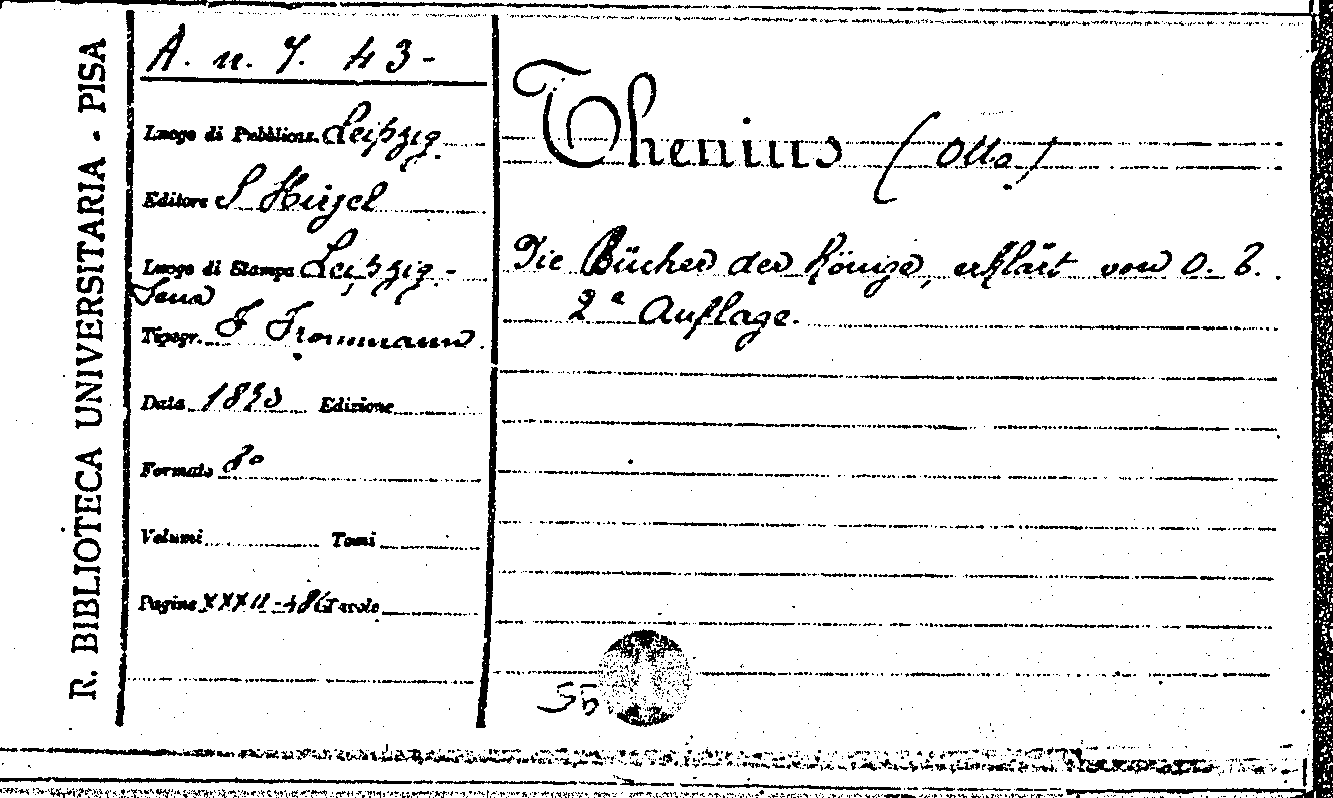 R. BIBLIOTECA UNIVERSITARIA - PISA
A. n. 7. 43-
Luogo di Pubblicaz. Leipzig
Editore S Hirzel
Luogo di Stampa Leipzig -
Jena
Tipogr. F Frommann
Data Edizione
Formato 8°
Volumi Tomi
Pagine Tavole
Thenius (Otto)
Die Bücher der Könige, erklärt von O. T.
2ª Auflage.